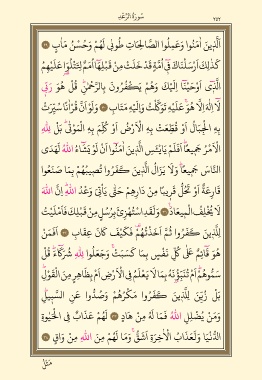 سُورَةُ الرَّعْدِ
٢٥٢
اَلَّذٖينَ اٰمَنُوا وَعَمِلُوا الصَّالِحَاتِ طُوبٰى لَهُمْ وَحُسْنُ مَاٰبٍ ﴿٢٩﴾
كَذٰلِكَ اَرْسَلْنَاكَ فٖٓى اُمَّةٍ قَدْ خَلَتْ مِنْ قَبْلِهَٓا اُمَمٌ لِتَتْلُوَا۬ عَلَيْهِمُ
الَّذٖٓى اَوْحَيْنَٓا اِلَيْكَ وَهُمْ يَكْفُرُونَ بِالرَّحْمٰنِؕ قُلْ هُوَ رَبّٖى
لَٓا اِلٰهَ اِلَّا هُوَۚ عَلَيْهِ تَوَكَّلْتُ وَاِلَيْهِ مَتَابِ ﴿٣٠﴾ وَلَوْ اَنَّ قُرْاٰنًا سُيِّرَتْ
بِهِ الْجِبَالُ اَوْ قُطِّعَتْ بِهِ الْاَرْضُ اَوْ كُلِّمَ بِهِ الْمَوْتٰىؕ بَلْ لِلّٰهِ
الْاَمْرُ جَمٖيعًاؕ اَفَلَمْ يَا۬يْـَٔسِ الَّذٖينَ اٰمَنُٓوا اَنْ لَوْ يَشَٓاءُ اللّٰهُ لَهَدَى
النَّاسَ جَمٖيعًاؕ وَلَا يَزَالُ الَّذٖينَ كَفَرُوا تُصٖيبُهُمْ بِمَا صَنَعُوا
قَارِعَةٌ اَوْ تَحُلُّ قَرٖيبًا مِنْ دَارِهِمْ حَتّٰى يَاْتِىَ وَعْدُ اللّٰهِؕ اِنَّ اللّٰهَ
لَا يُخْلِفُ الْمٖيعَادَ ﴿٣١﴾ وَلَقَدِ اسْتُهْزِئَ بِرُسُلٍ مِنْ قَبْلِكَ فَاَمْلَيْتُ
لِلَّذٖينَ كَفَرُوا ثُمَّ اَخَذْتُهُمْ فَكَيْفَ كَانَ عِقَابِ ﴿٣٢﴾ اَفَمَنْ
هُوَ قَٓائِمٌ عَلٰى كُلِّ نَفْسٍ بِمَا كَسَبَتْۚ وَجَعَلُوا لِلّٰهِ شُرَكَٓاءَؕ قُلْ
سَمُّوهُمْؕ اَمْ تُنَبِّؤُ۫نَهُ بِمَا لَا يَعْلَمُ فِى الْاَرْضِ اَمْ بِظَاهِرٍ مِنَ الْقَوْلِؕ
بَلْ زُيِّنَ لِلَّذٖينَ كَفَرُوا مَكْرُهُمْ وَصُدُّوا عَنِ السَّبٖيلِؕ
وَمَنْ يُضْلِلِ اللّٰهُ فَمَا لَهُ مِنْ هَادٍ ﴿٣٣﴾ لَهُمْ عَذَابٌ فِى الْحَيٰوةِ
الدُّنْيَا وَلَعَذَابُ الْاٰخِرَةِ اَشَقُّۚ وَمَا لَهُمْ مِنَ اللّٰهِ مِنْ وَاقٍ ﴿٣٤﴾
مَثَلُ